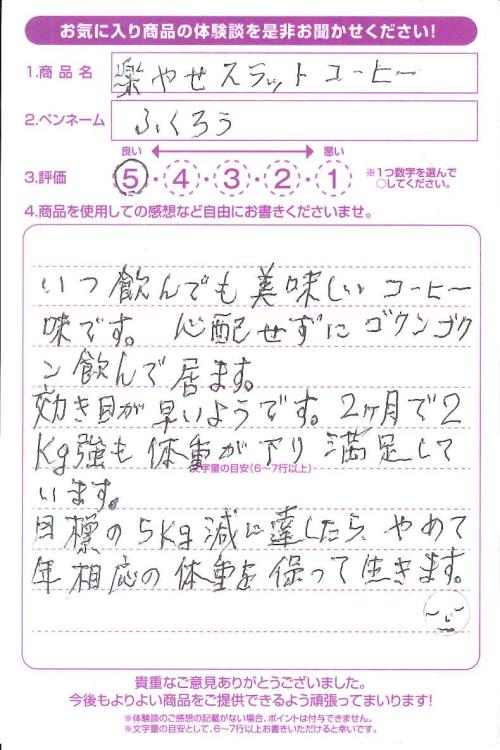 お気に入り商品の体験談を是非お聞かせください!
1.商品名 楽やせスラットコーヒー
2.ペンネーム ふくろう
良い 悪い
3.評価 5・4・3・2・1 ※1つ数字を選んで
○してください。
4.商品を使用しての感想など自由にお書きくださいませ。
いつ飲んでも美味しいコーヒー
味です。 心配せずにゴクンゴク
ン飲んで居ます。
効き目が早いようです。2ヶ月で2
Kg強も体重が下り満足して
文字量の目安(6~7行以上)
います。
目標の5Kg減に達したら、やめて
年相応の体重を保って生きます。
貴重なご意見ありがとうございました。
今後もよりよい商品をご提供できるよう頑張ってまいります!
※体験談のご感想の記載がない場合、ポイントは付与できません。
※文字量の目安として、6~7行以上お書きいただけると幸いです。